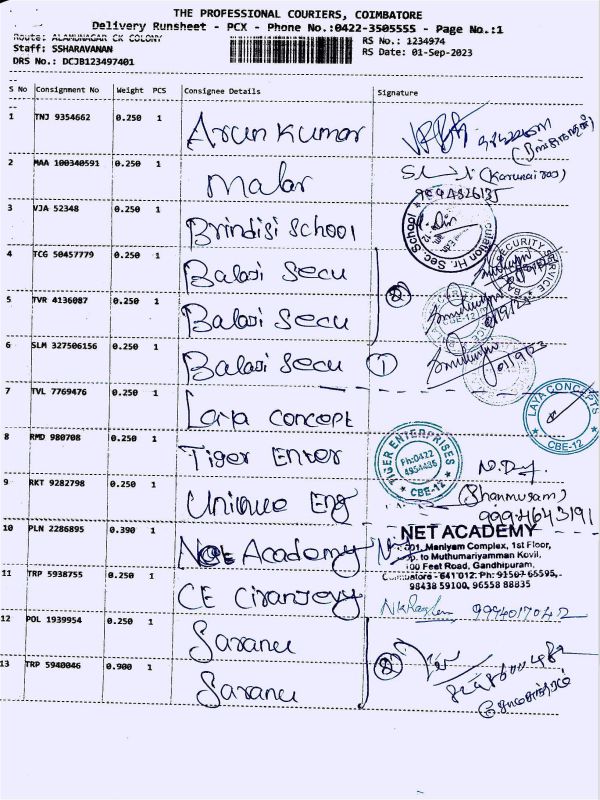 THE PROFESSIONAL COURIERS, COIMBATORE
Delivery Runsheet - PCX - Phone No.:0422-3505555 - Page No.:1
Route: ALAMUNAGAR CK COLONY
Staff: SSHARAVANAN
DRS No.: DCJB123497401
RS No.: 1234974
RS Date: 01-Sep-2023
S No Consignment No Weight PCS Consignee Details Signature
1 TNJ 9354662 0.250 1 Arun Kumar
2 MAA 100340591 0.250 1 Malar (Karunai raj)
3 VJA 52348 0.250 1 Brindisi School
4 TCG 50457779 0.250 1 Balaji Secu
5 TVR 4136087 0.250 1 Balaji Secu
2
6 SLM 327506156 0.250 1 Balaji Secu 1 01/9/23
7 TVL 7769476 0.250 1 Laya Concept
LAYA CONCEPTS
CBE-12
8 RMD 980708 0.250 1 Tiger Enter
TIGER ENTERPRISES
Ph:0422
CBE-12
9 RKT 9282798 0.250 1 Unique Eng
(Shanmugam)
10 PLN 2286895 0.390 1 Net Academy
NET ACADEMY
Maniyam Complex, 1st Floor,
to Muthumariyamman Kovil,
100 Feet Road, Gandhipuram,
Coimbatore - 641 012. Ph: 91507 65595,
98438 59100, 96558 88835
11 TRP 5938755 0.250 1 CE Ciranjevy 9994017042
12 POL 1939954 0.250 1 Saranu
13 TRP 5940046 0.900 1 Saranu
2